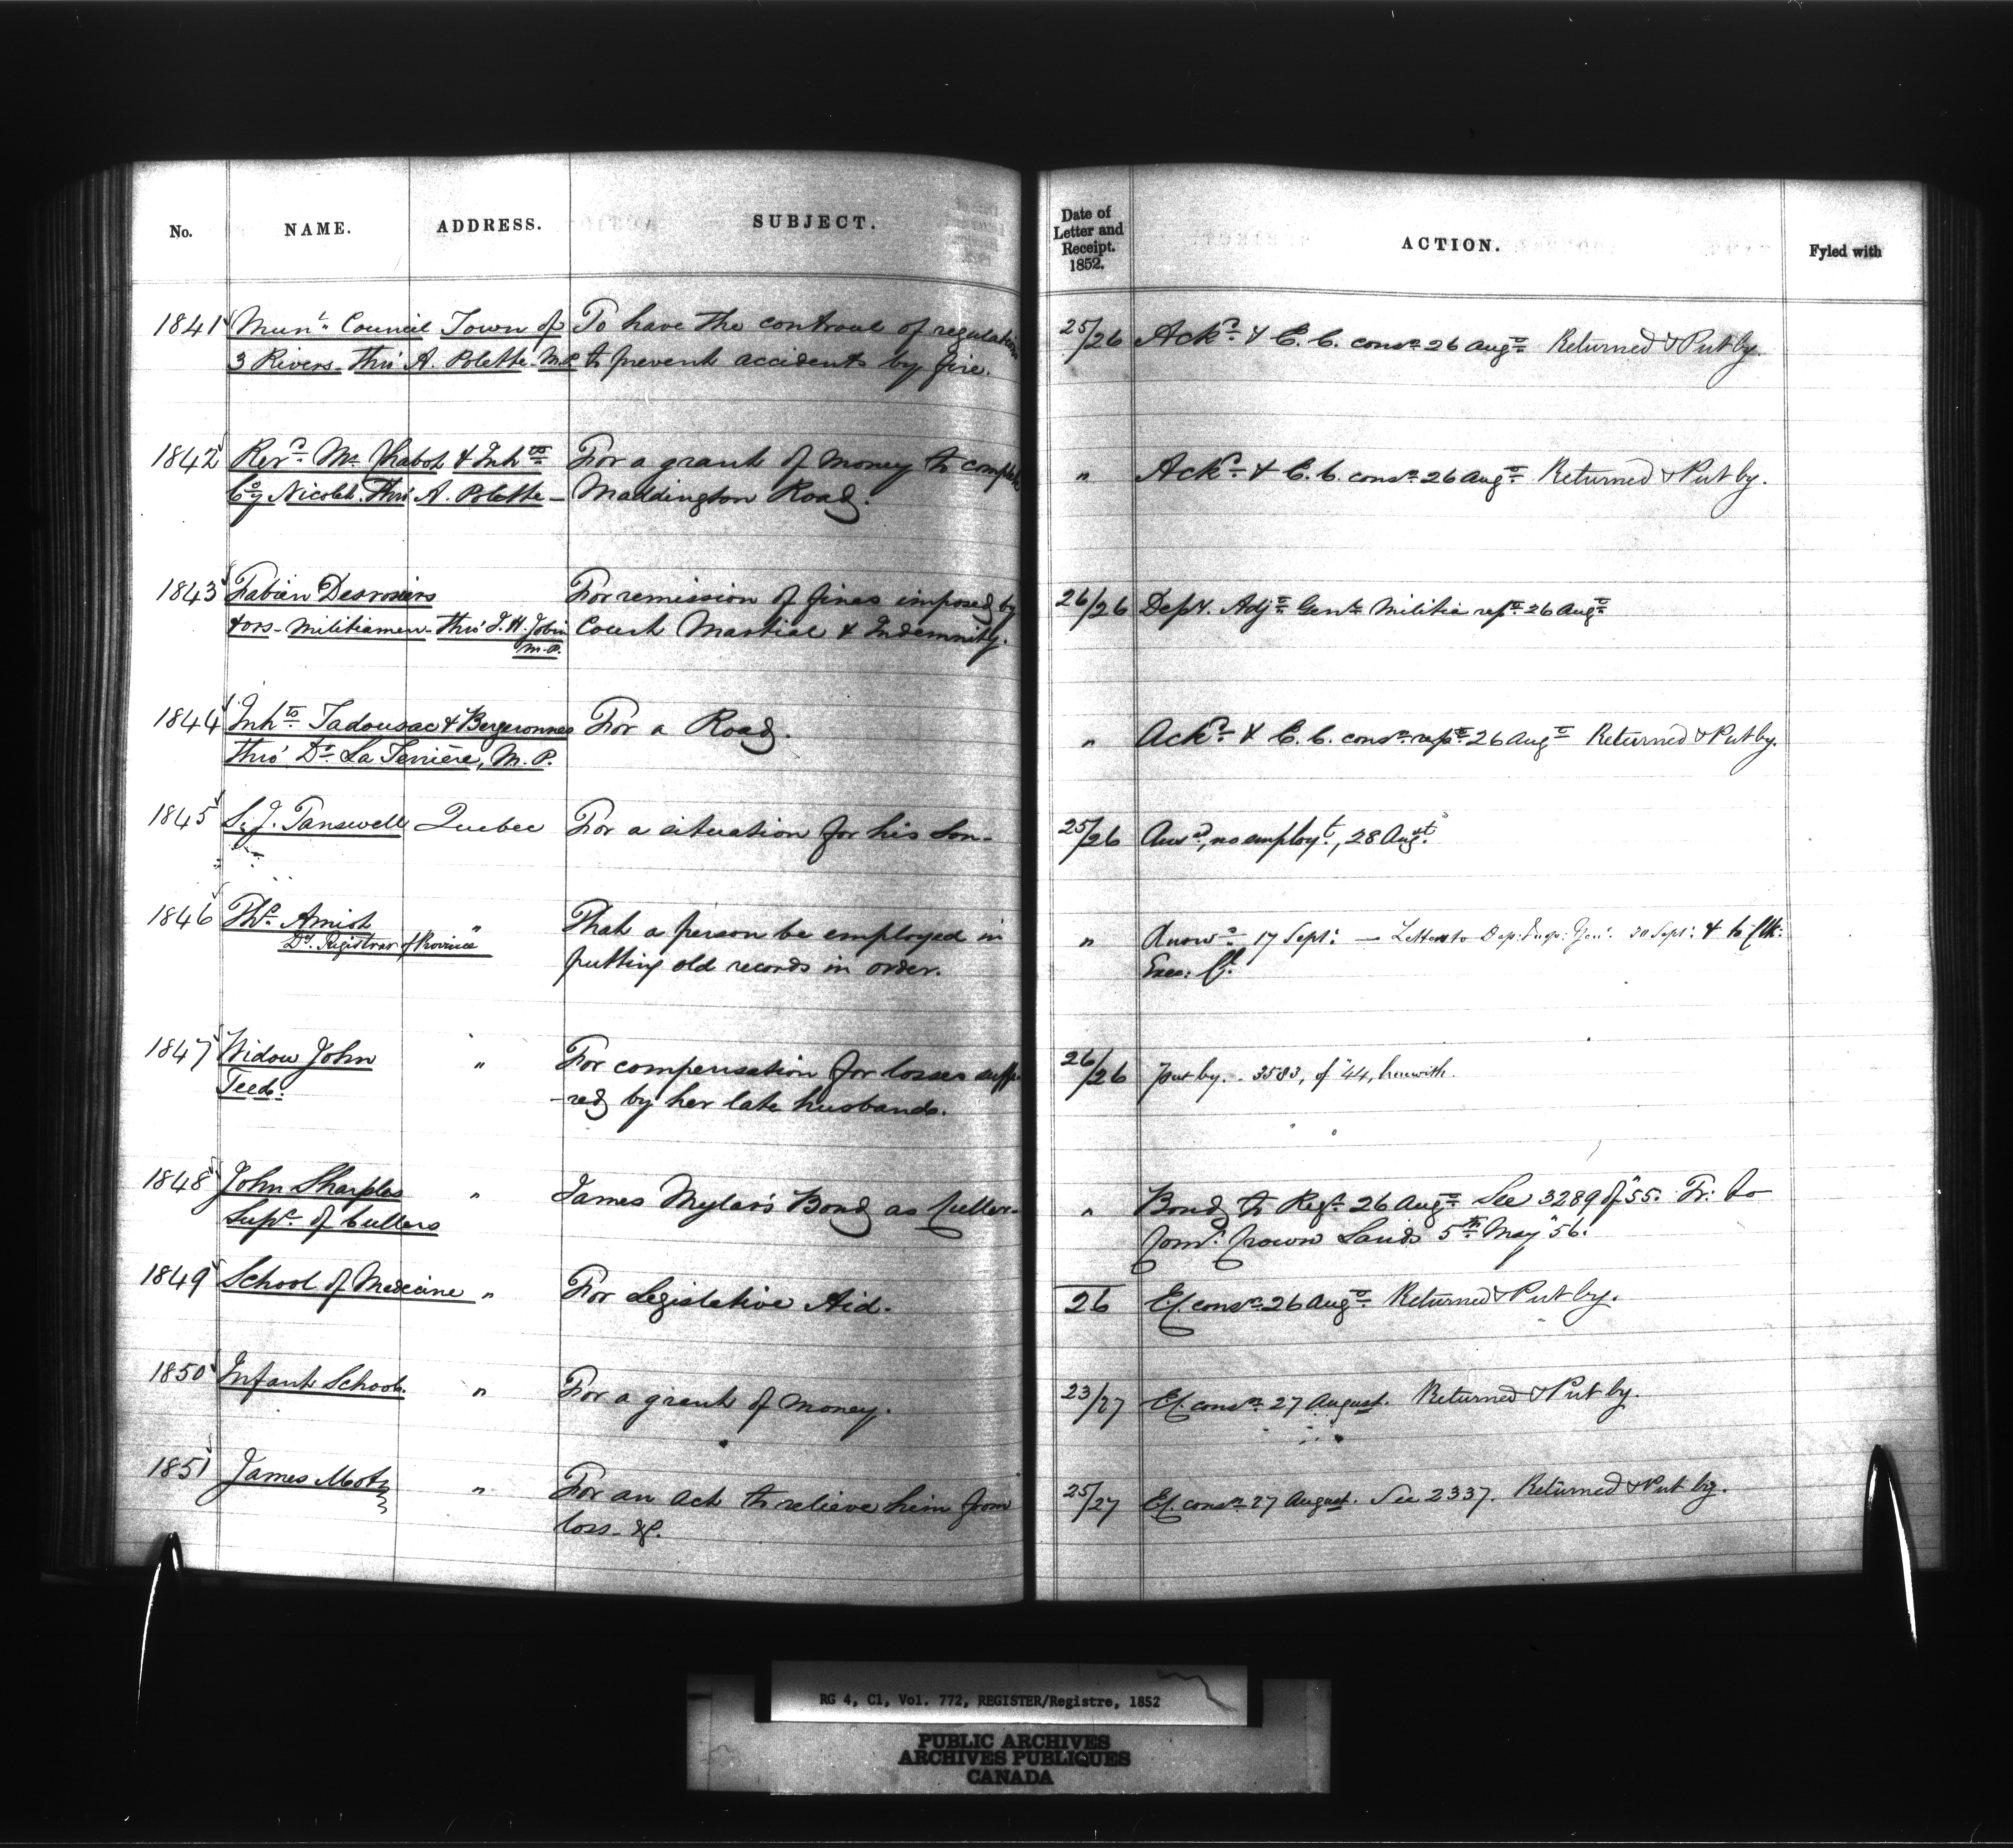 No. NAME. ADDRESS. SUBJECT. Date of Letter and Receipt. 1852. ACTION. Fyled with
1841 Mun.l Council Town of To have the controul of regulations 25/26 Ackd & E. C. consn 26 Augt Returned & Put by.
3 Rivers thro' A. Polette M.P. to prevent accidents by fire.
1842 Revd Mr Chabot & Inhts For a grant of money to complete " Ackd & E. C. consn 26 Augt Returned & Put by.
Coy Nicolet. Thro' A. Polette – Maddington Road.
1843 Fabien Desrosiers For remission of fines imposed by 26/26 Depy. Adjt Genl Militia rept 26 Augt
& ors – Militiamen – thro' J. H. Jobin Court Martial & Indemnity.
M.P.
1844 Inhts Tadousac & Bergeronnes For a Road. " Ackd & E. C. consn rept 26 Augt Returned & Put by.
thro' Dr La Terrière, M. P.
1845 S. J. Tanswell Quebec For a situation for his Son – 25/26 Ansd, no employt, 28 Augt.
1846 Ths Amiot " That a person be employed in " Answd 17 Sept: — Letters to Dep: Insp: Genl. 20 Sept: & to Clk:
Dy Registrar of Province putting old records in order. Exec: Cl.
1847 Widow John " For compensation for losses suffe- 26/26 Put by. – 3583, of "44, herewith.
Teed. -red by her late husband.
1848 John Sharples " James Mylar's Bond as Culler – " Bond to Regr 26 Augt See 3289 of "55. Tr: to
Supr of Cullers Comr. Crown Lands 5th May "56.
1849 School of Medecine " For Legislative Aid. 26 Ex. consn 26 Augt Returned & Put by.
1850 Infant School. " For a grant of money. 23/27 Ex. consn 27 August. Returned & Put by.
1851 James Motz " For an Act to relieve him from 25/27 Ex. consn 27 August. See 2337. Returned & Put by.
loss – &c.
RG 4, C1, Vol. 772, REGISTER/Registre, 1852
PUBLIC ARCHIVES
ARCHIVES PUBLIQUES
CANADA